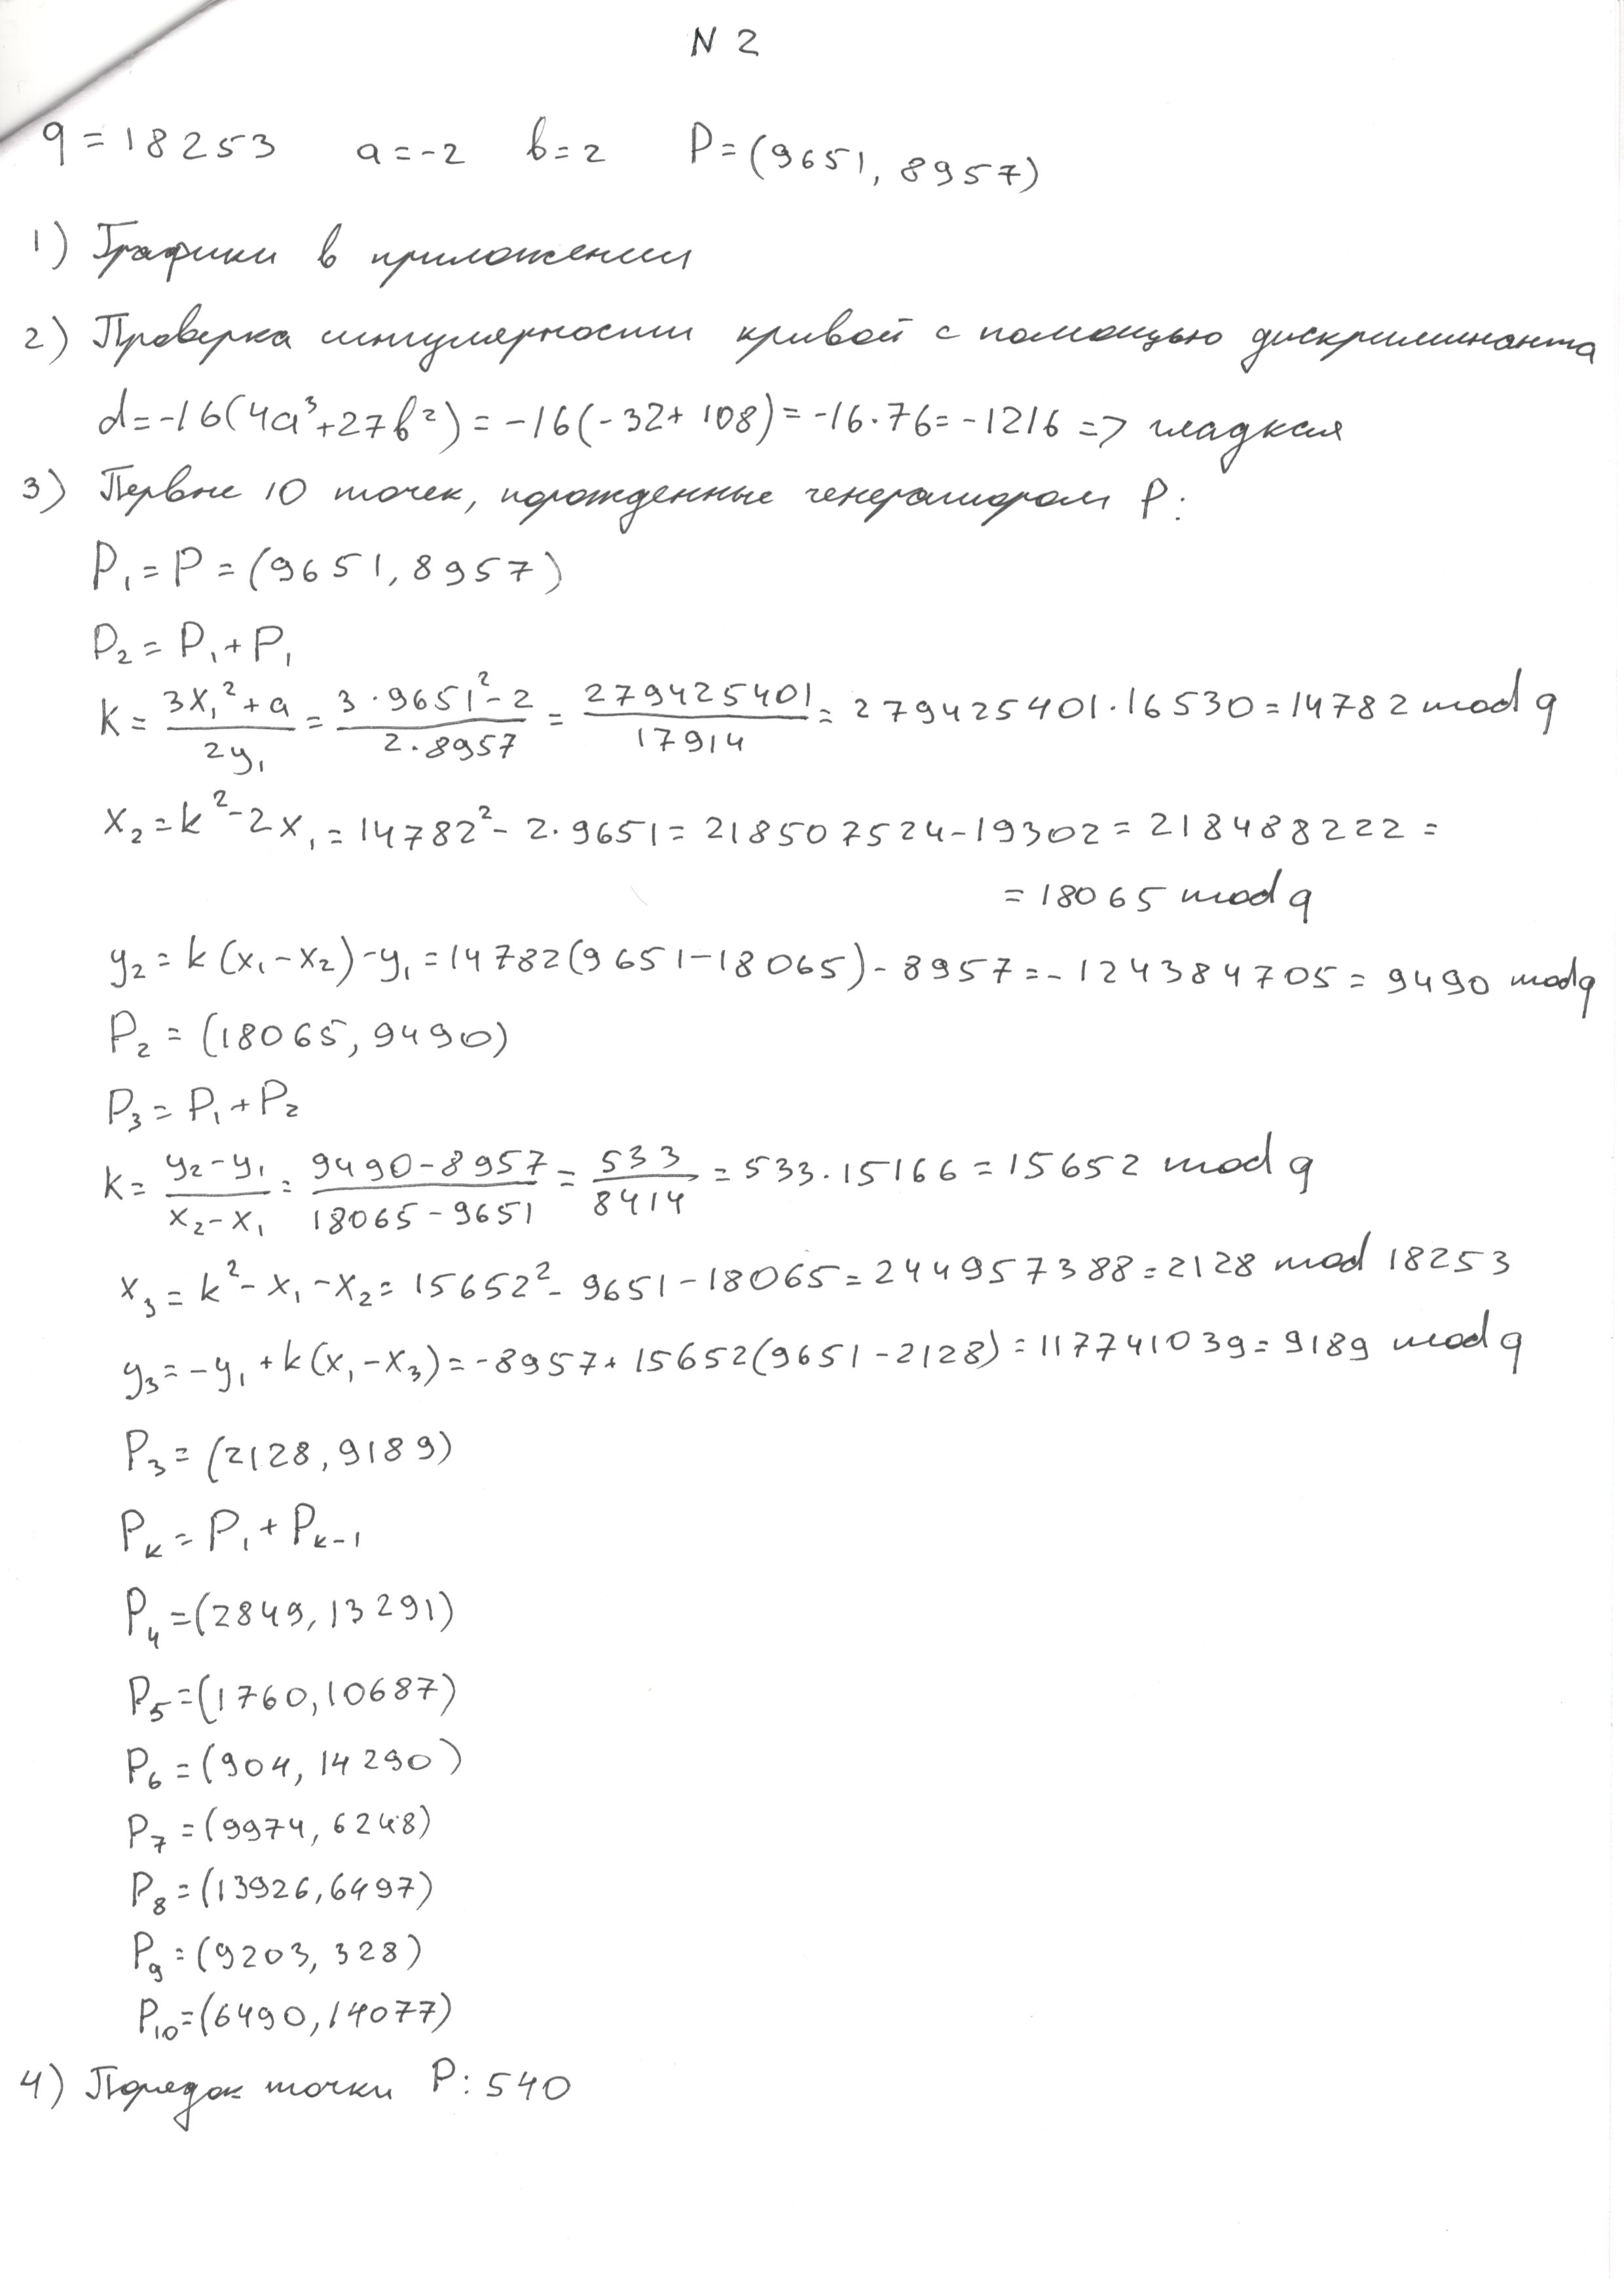 N 2
q = 18253 a = -2 b = 2 P = (9651, 8957)
1) Графики в приложении
2) Проверка сингулярности кривой с помощью дискриминанта
d = -16(4a³ + 27b²) = -16(-32 + 108) = -16·76 = -1216 => гладкая
3) Первые 10 точек, порожденные генератором P:
P₁ = P = (9651, 8957)
P₂ = P₁ + P₁
k = (3x₁² + a)/(2y₁) = (3·9651² - 2)/(2·8957) = 279425401/17914 = 279425401·16530 = 14782 mod q
x₂ = k² - 2x₁ = 14782² - 2·9651 = 218507524 - 19302 = 218488222 =
= 18065 mod q
y₂ = k(x₁ - x₂) - y₁ = 14782(9651 - 18065) - 8957 = -124384705 = 9490 mod q
P₂ = (18065, 9490)
P₃ = P₁ + P₂
k = (y₂ - y₁)/(x₂ - x₁) = (9490 - 8957)/(18065 - 9651) = 533/8414 = 533·15166 = 15652 mod q
x₃ = k² - x₁ - x₂ = 15652² - 9651 - 18065 = 244957388 = 2128 mod 18253
y₃ = -y₁ + k(x₁ - x₃) = -8957 + 15652(9651 - 2128) = 117741039 = 9189 mod q
P₃ = (2128, 9189)
Pₖ = P₁ + Pₖ₋₁
P₄ = (2849, 13291)
P₅ = (1760, 10687)
P₆ = (904, 14290)
P₇ = (9974, 6248)
P₈ = (13926, 6497)
P₉ = (9203, 328)
P₁₀ = (6490, 14077)
4) Порядок точки P: 540